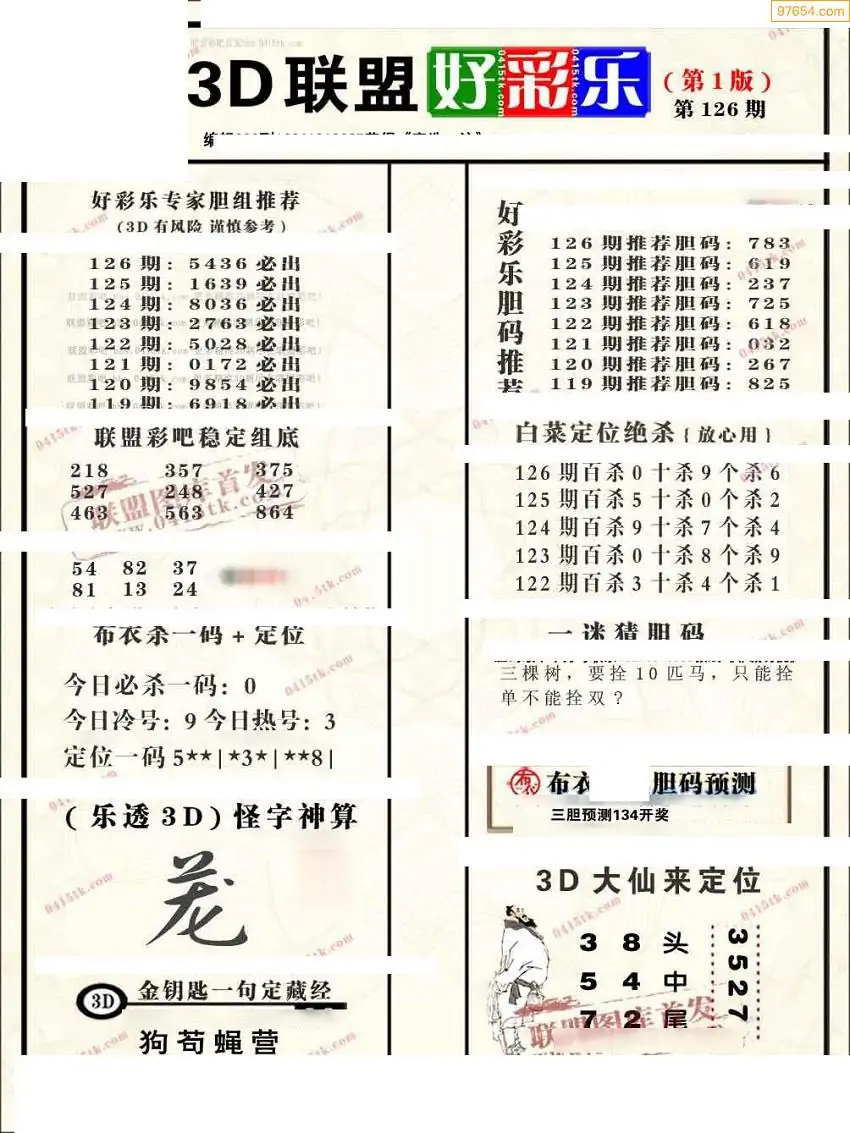 97654.com
3D联盟好彩乐
(第1版)
第126期
好彩乐专家胆组推荐
(3D有风险 谨慎参考)
126期: 5436必出
125期: 1639必出
124期: 8036必出
123期: 2763必出
122期: 5028必出
121期: 0172必出
120期: 9854必出
119期: 6918必出
联盟彩吧稳定组底
218 357 375
527 248 427
463 563 864
54 82 37
81 13 24
布衣杀一码+定位
今日必杀一码: 0
今日冷号: 9 今日热号: 3
定位一码 5**|*3*|**8|
(乐透3D)怪字神算
3D 金钥匙一句定藏经
狗苟蝇营
好彩乐胆码推荐
126期推荐胆码: 783
125期推荐胆码: 619
124期推荐胆码: 237
123期推荐胆码: 725
122期推荐胆码: 618
121期推荐胆码: 032
120期推荐胆码: 267
119期推荐胆码: 825
白菜定位绝杀{放心用}
126期百杀0十杀9个杀6
125期百杀5十杀0个杀2
124期百杀9十杀7个杀4
123期百杀0十杀8个杀9
122期百杀3十杀4个杀1
一迷猜胆码
三棵树，要拴10匹马，只能拴
单不能拴双？
布衣 胆码预测
三胆预测134开奖
3D大仙来定位
3 8 头
5 4 中
7 2 尾
3527
联盟图库首发
www.0415tk.com
联盟图库首发
0415tk.com